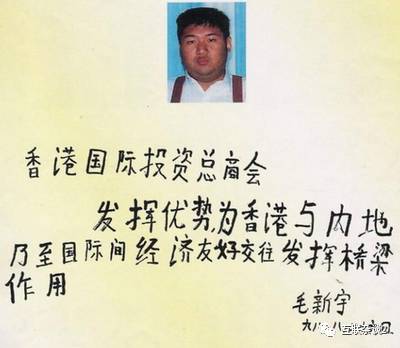 香港国际投资总商会
发挥优势,为香港与内地
乃至国际间经济友好交往发挥桥梁
作用
毛新宇